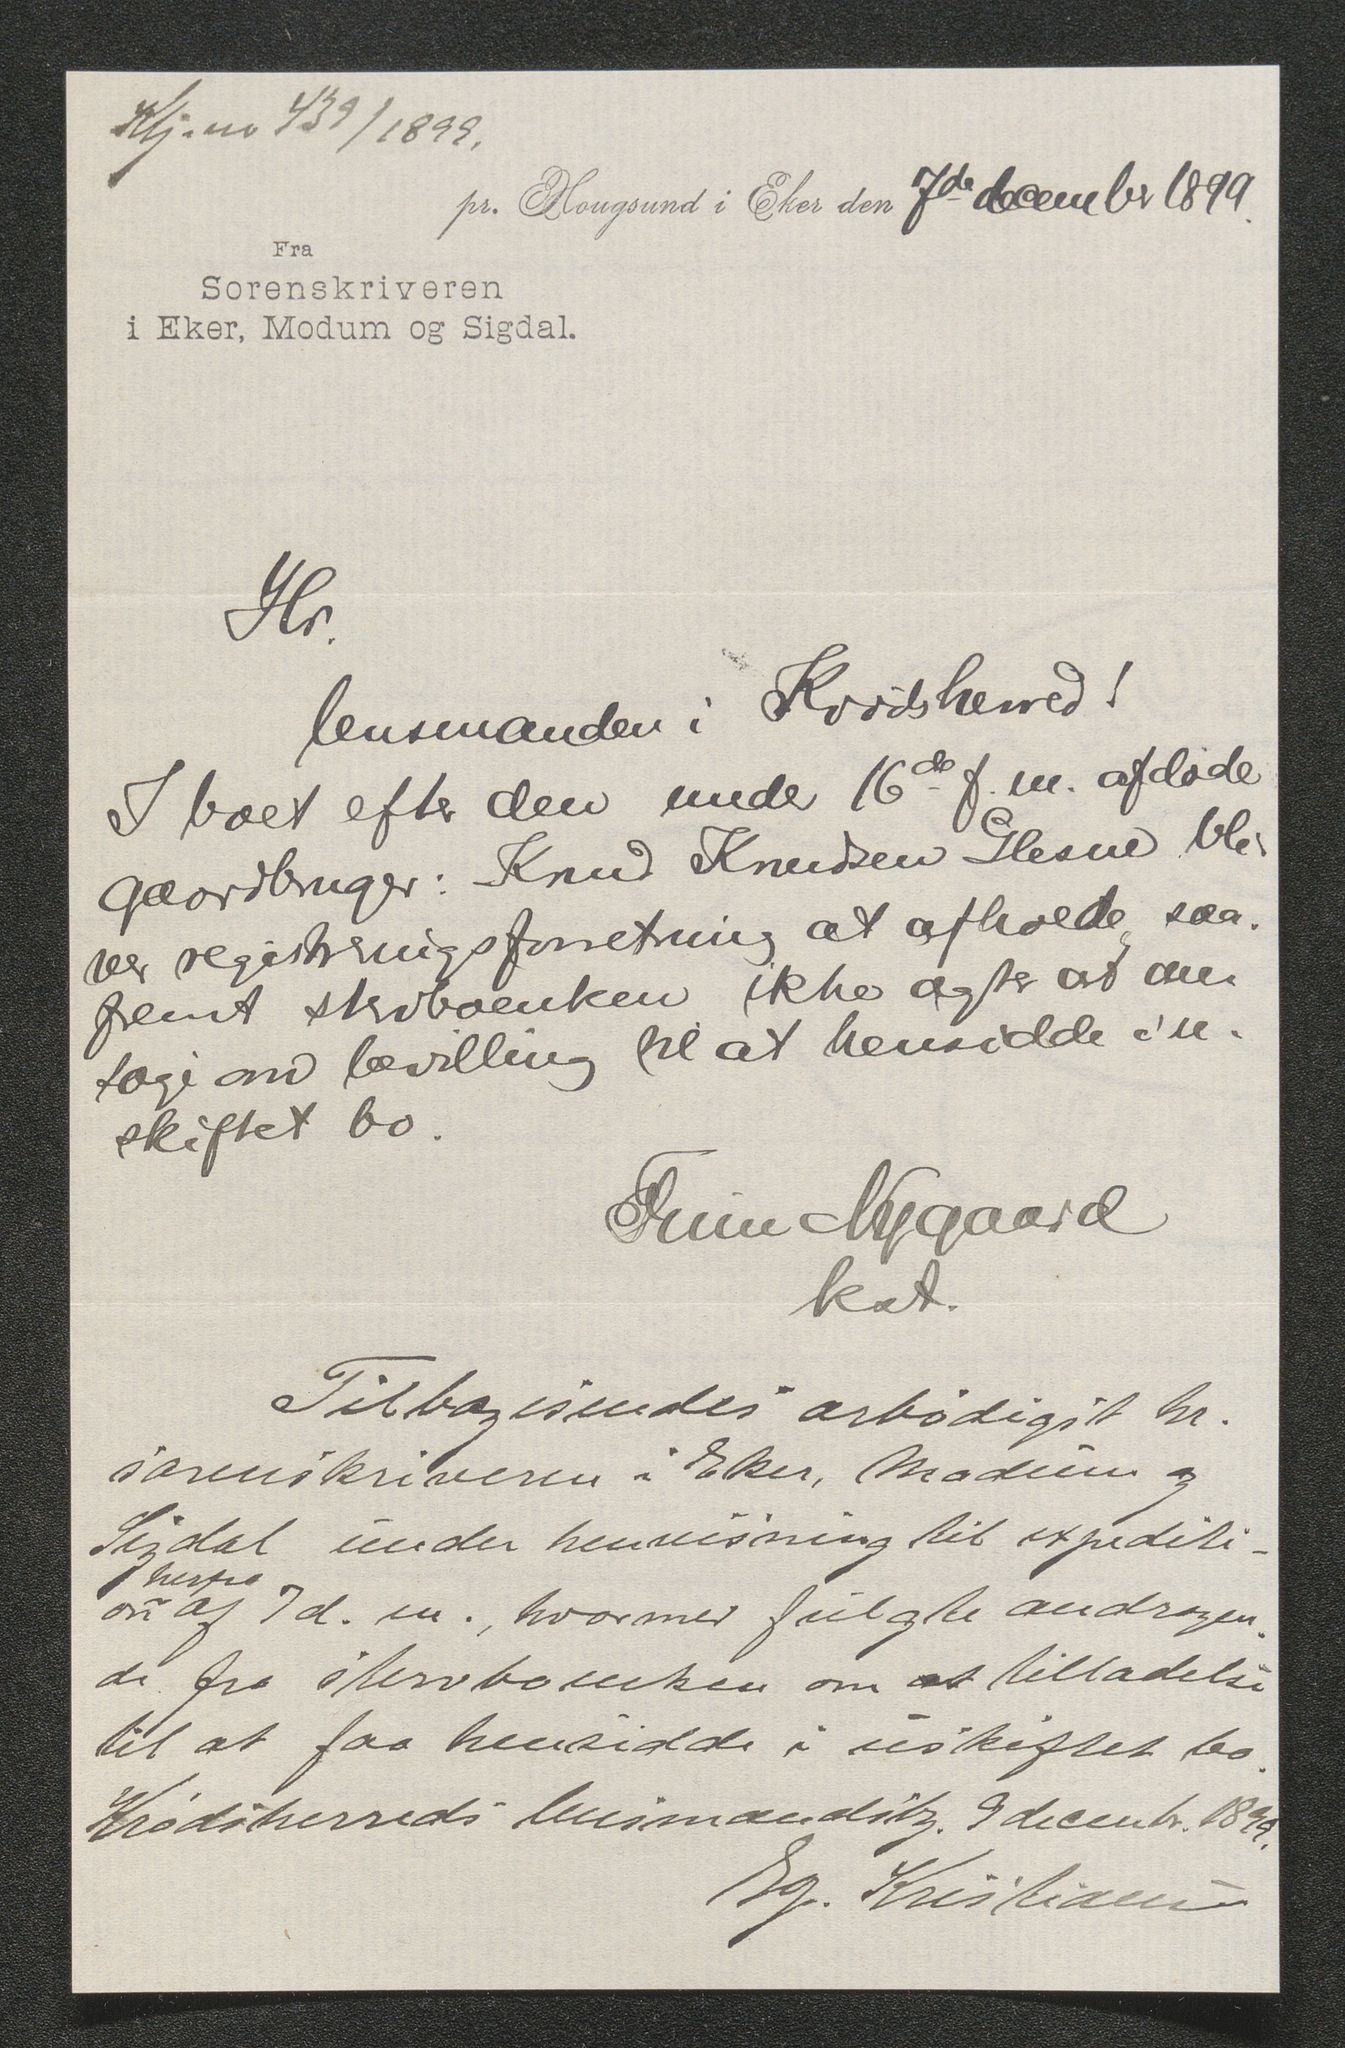 Kj. no 439/1899.
pr. Hougsund i Eker den 7de december 1899.
Fra
Sorenskriveren
i Eker, Modum og Sigdal.
Hr.
lensmanden i Krødsherred!
I boet efter den under 16de f. m. afdøde
gaardbruger: Knud Knudsen Glesne bli-
ver registreringsforretning at afholde, saa-
fremt stervboenken ikke agter at an-
søge om bevilling til at hensidde i u-
skiftet bo.
Finn Nygaard
kst.
Tilbagesendes ærbødigst hr.
sorenskriveren i Eker, Modum og
Sigdal under henvisning til expediti-
on herfra af 7 d. m., hvormed fulgte andragen-
de fra stervboenken om at tilladelse
til at faa hensidde i uskiftet bo.
Krødsherreds lensmandsbg. 9 decembr. 1899.
Eg. Kristiansen